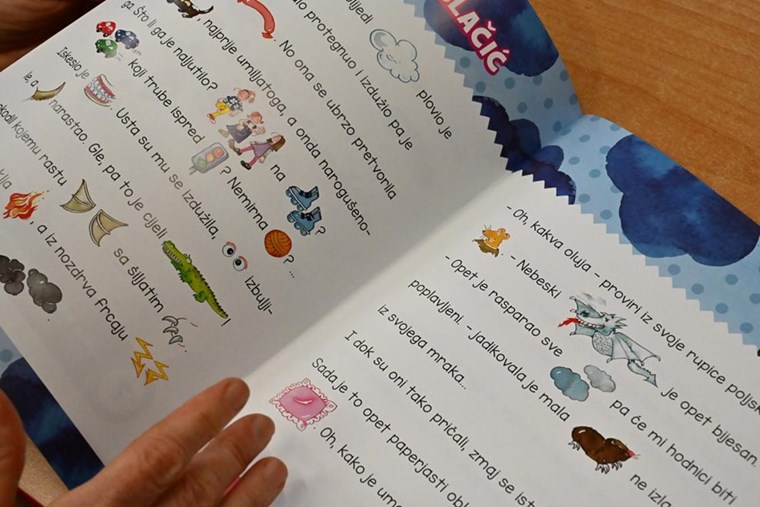 LAČIĆ
plovio je
protegnuo i izdužio pa je
. No ona se ubrzo pretvorila
, najprije umiljatoga, a onda narogušeno-
ga. Što li ga je naljutilo? na ?
koji trube ispred ? Nemirna ?...
Iskesio je . Usta su mu se izdužila, izbulji-
le, a narastao. Gle, pa to je cijeli !
kojemu rastu sa šiljatim
, a iz nozdrva frcaju
- Oh, kakva oluja - proviri iz svoje rupice
. - Nebeski je opet bijesan.
- Opet je rasparao sve pa će mi hodnici biti
poplavljeni. - jadikovala je mala
iz svojega mraka...
I dok su oni tako pričali, zmaj se
Sada je to opet paperjasti
. Oh, kako je